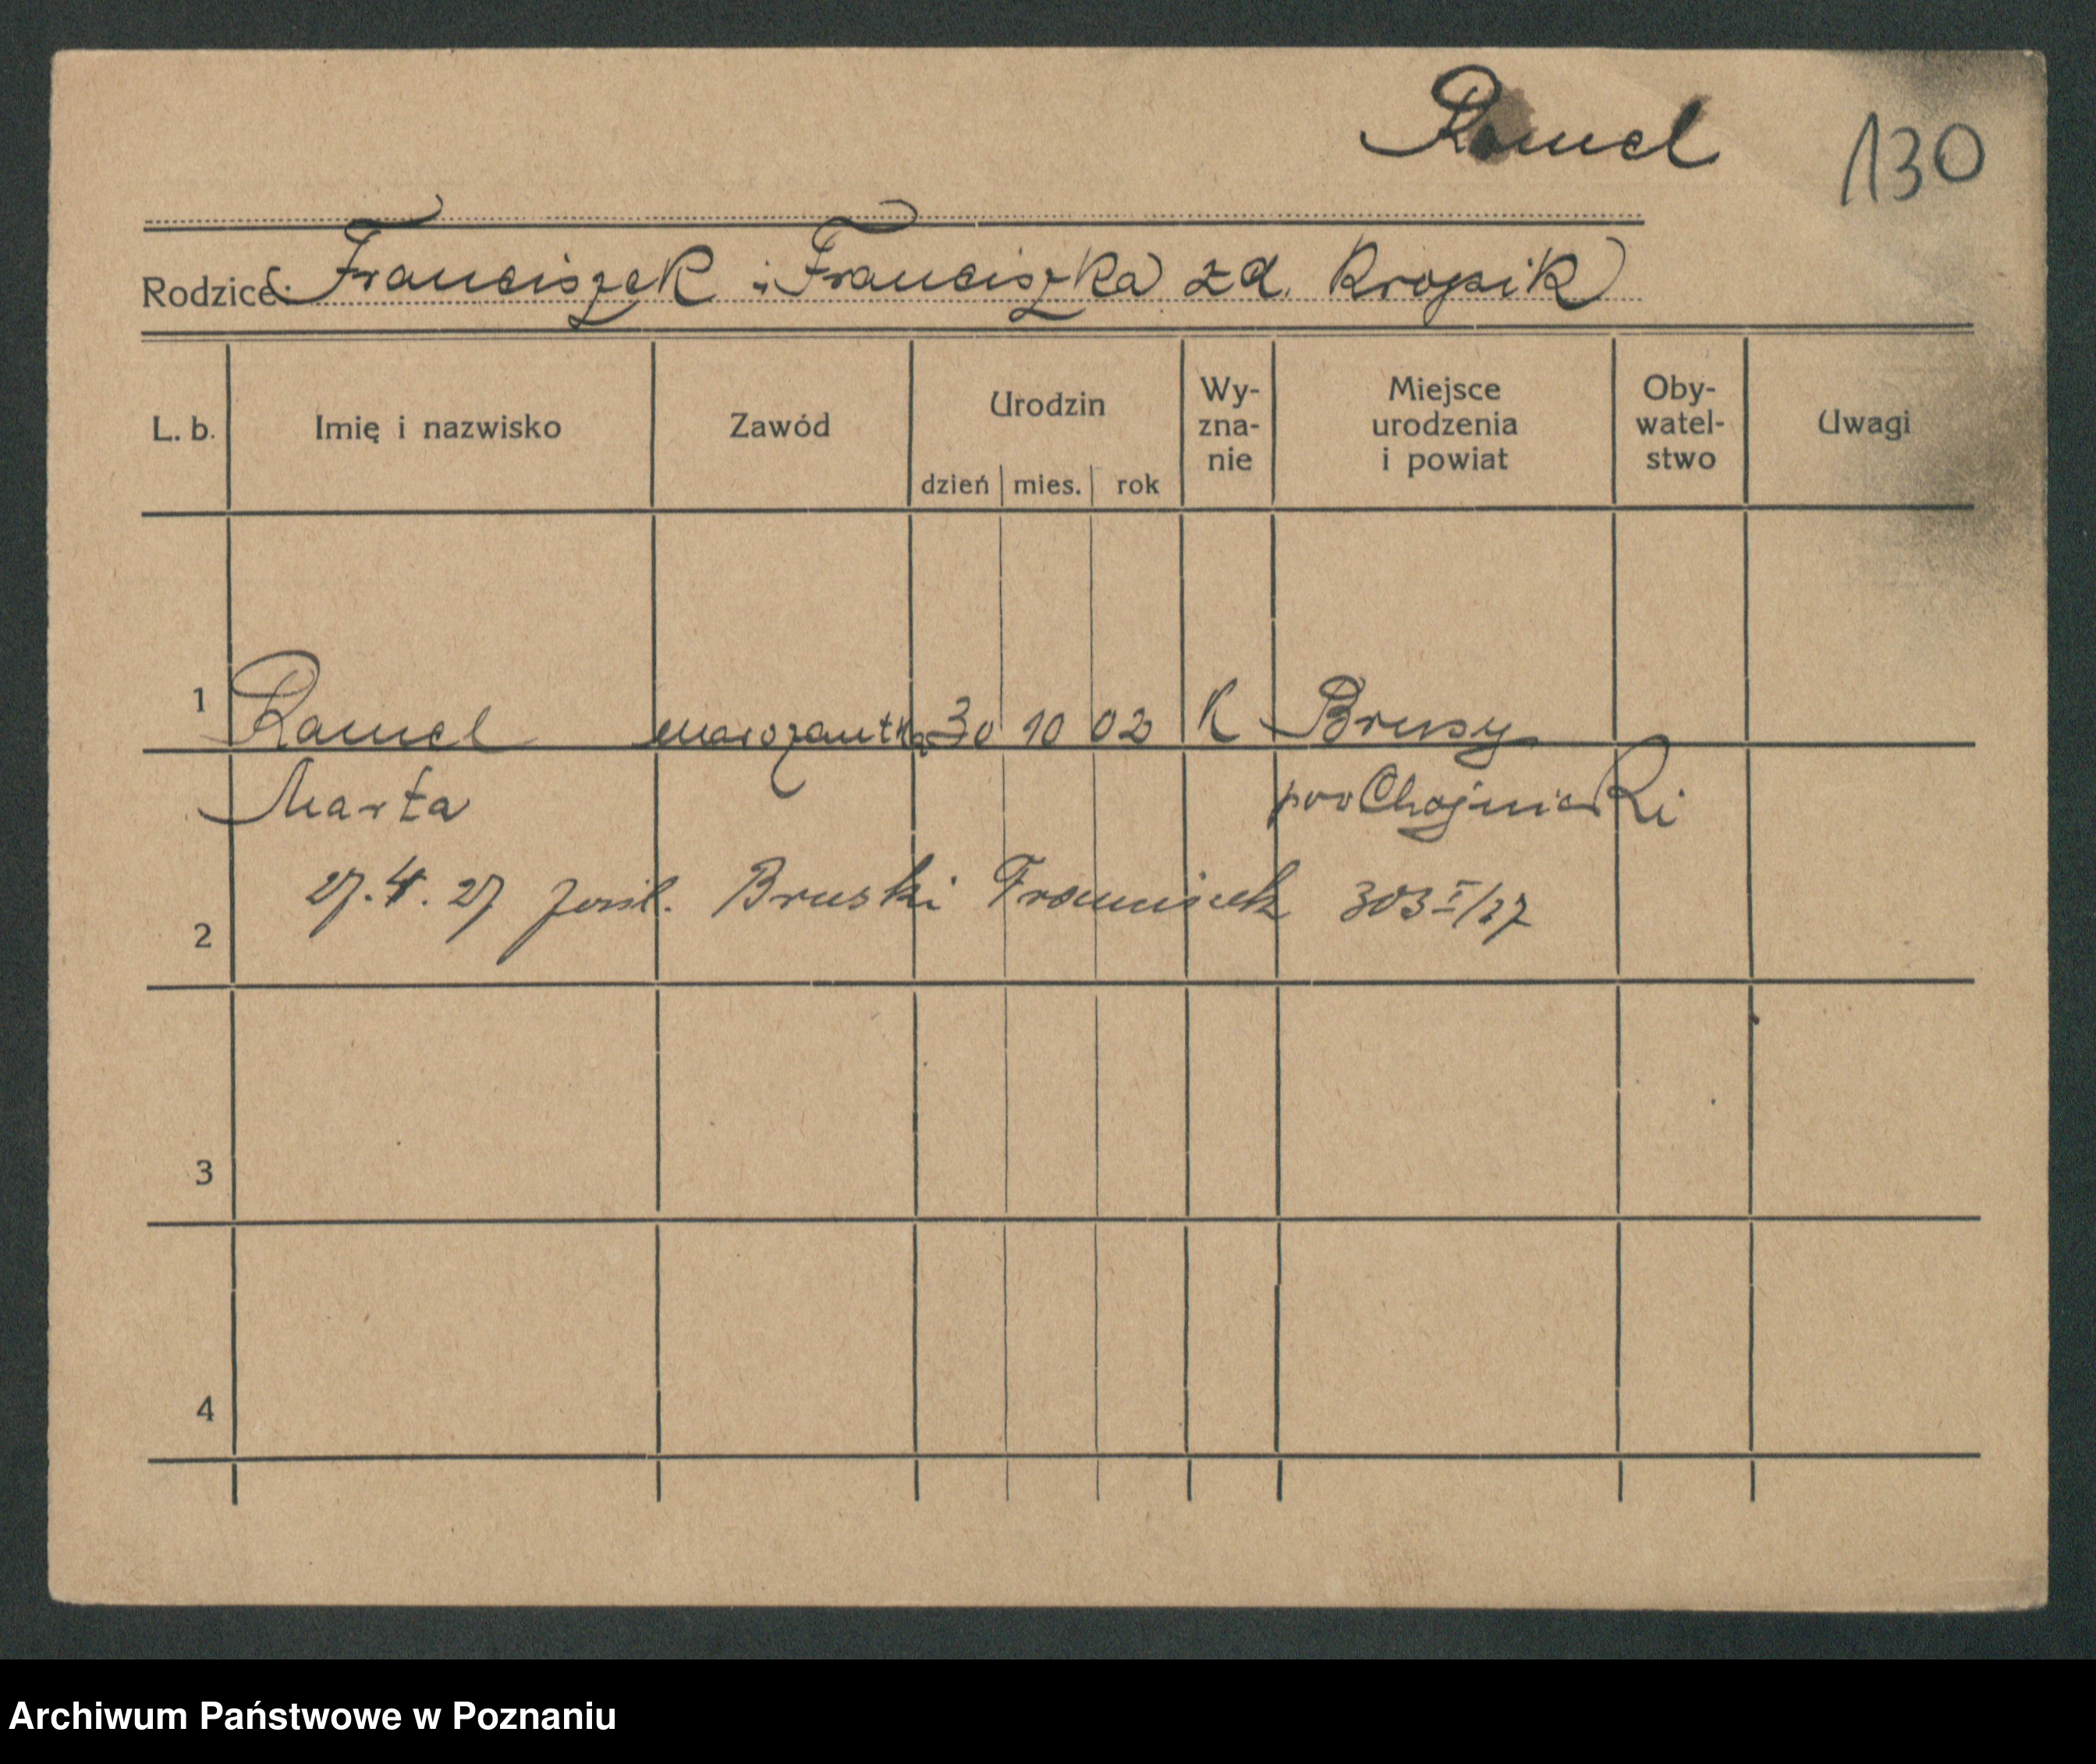 Ramel
130
Rodzice: Franciszek i Franciszka zd. Kropik
L. b.
Imię i nazwisko
Zawód
Urodzin
dzień mies. rok
Wy-
zna-
nie
Miejsce
urodzenia
i powiat
Oby-
watel-
stwo
Uwagi
1 Ramel 30 10 02 K Brusy
Marta pow Chojnicki
2 27.4.27 Bruski Franciszek 303 I/27
3
4
Archiwum Państwowe w Poznaniu